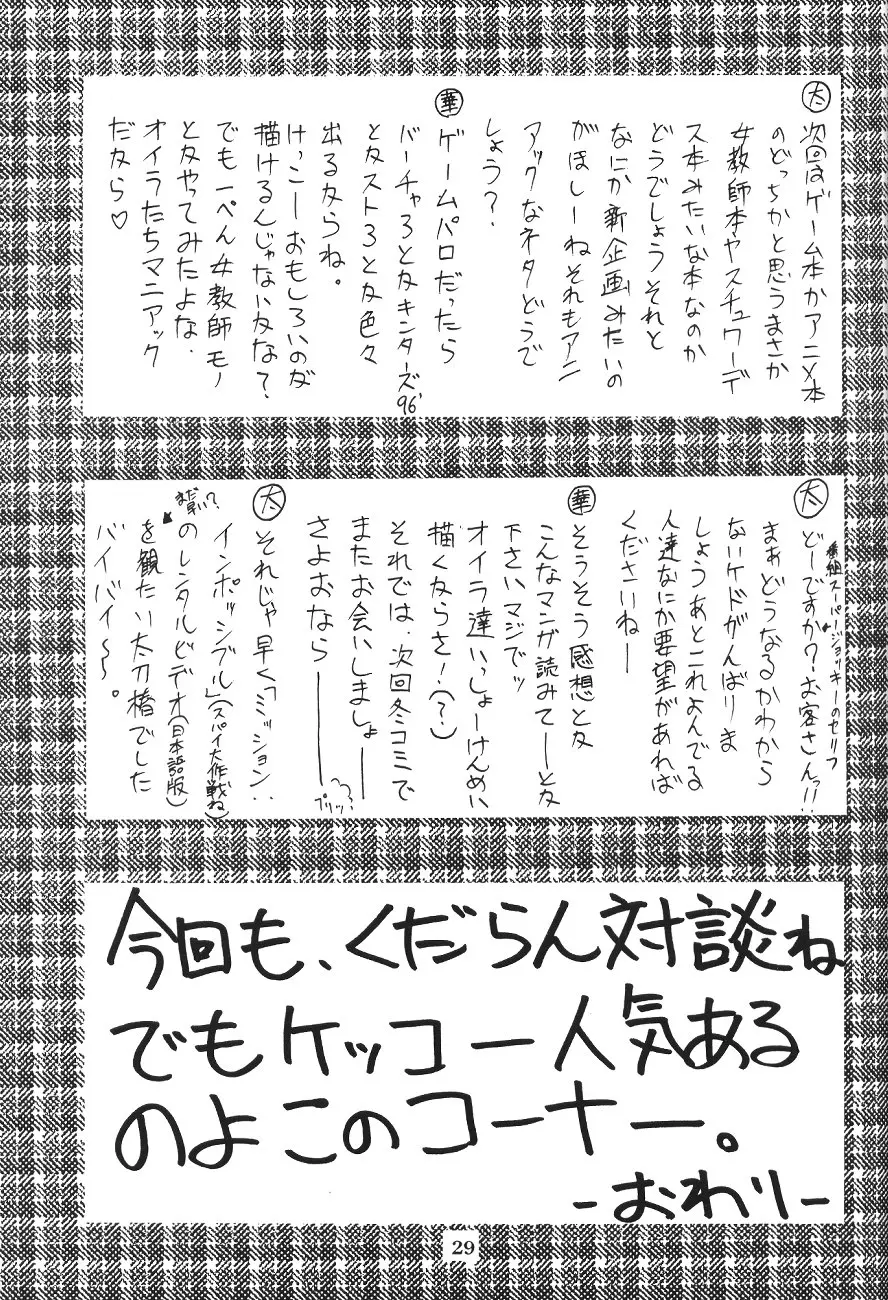 太
次回はゲーム本かアニメ本
のどっちかと思うまさか
女教師本やスチュワーデ
ス本みたいな本なのか
どうでしょうそれと
なにか新企画みたいの
がほしーねそれもアニ
アックなネタどうで
しょう?
華
ゲームパロだったら
バーチャ3とかキンターズ96'
とかスト3とか色々
出るからね。
けっこーおもしろいのが
描けるんじゃないかな?
でも一ぺん女教師モノ
とかやってみたよな.
オイラたちマニアック
だから♡
太
どーですか?お客さんっ!!
番組スーパージョッキーのセリフ
まぁどうなるかわから
ないケドがんばりま
しょうあとこれよんでる
人達なにか要望があれば
くださいねー
華
そうそう感想とか
こんなマンガ読みてーとか
下さいマジでッ
オイラ達いっしょーけんめい
描くからさ!(?)
それでは、次回冬コミで
またお会いしましょー
さよおならーーー
プリッ?
太
それじゃ早く「ミッション:
インポッシブル」(スパイ大作戦ね)
のレンタルビデオ(日本語版)
まだ早い?
を観たい太刀椿でした
バイバイ〜。
今回も、くだらん対談ね
でもケッコー人気ある
のよこのコーナー。
-おわり-
29